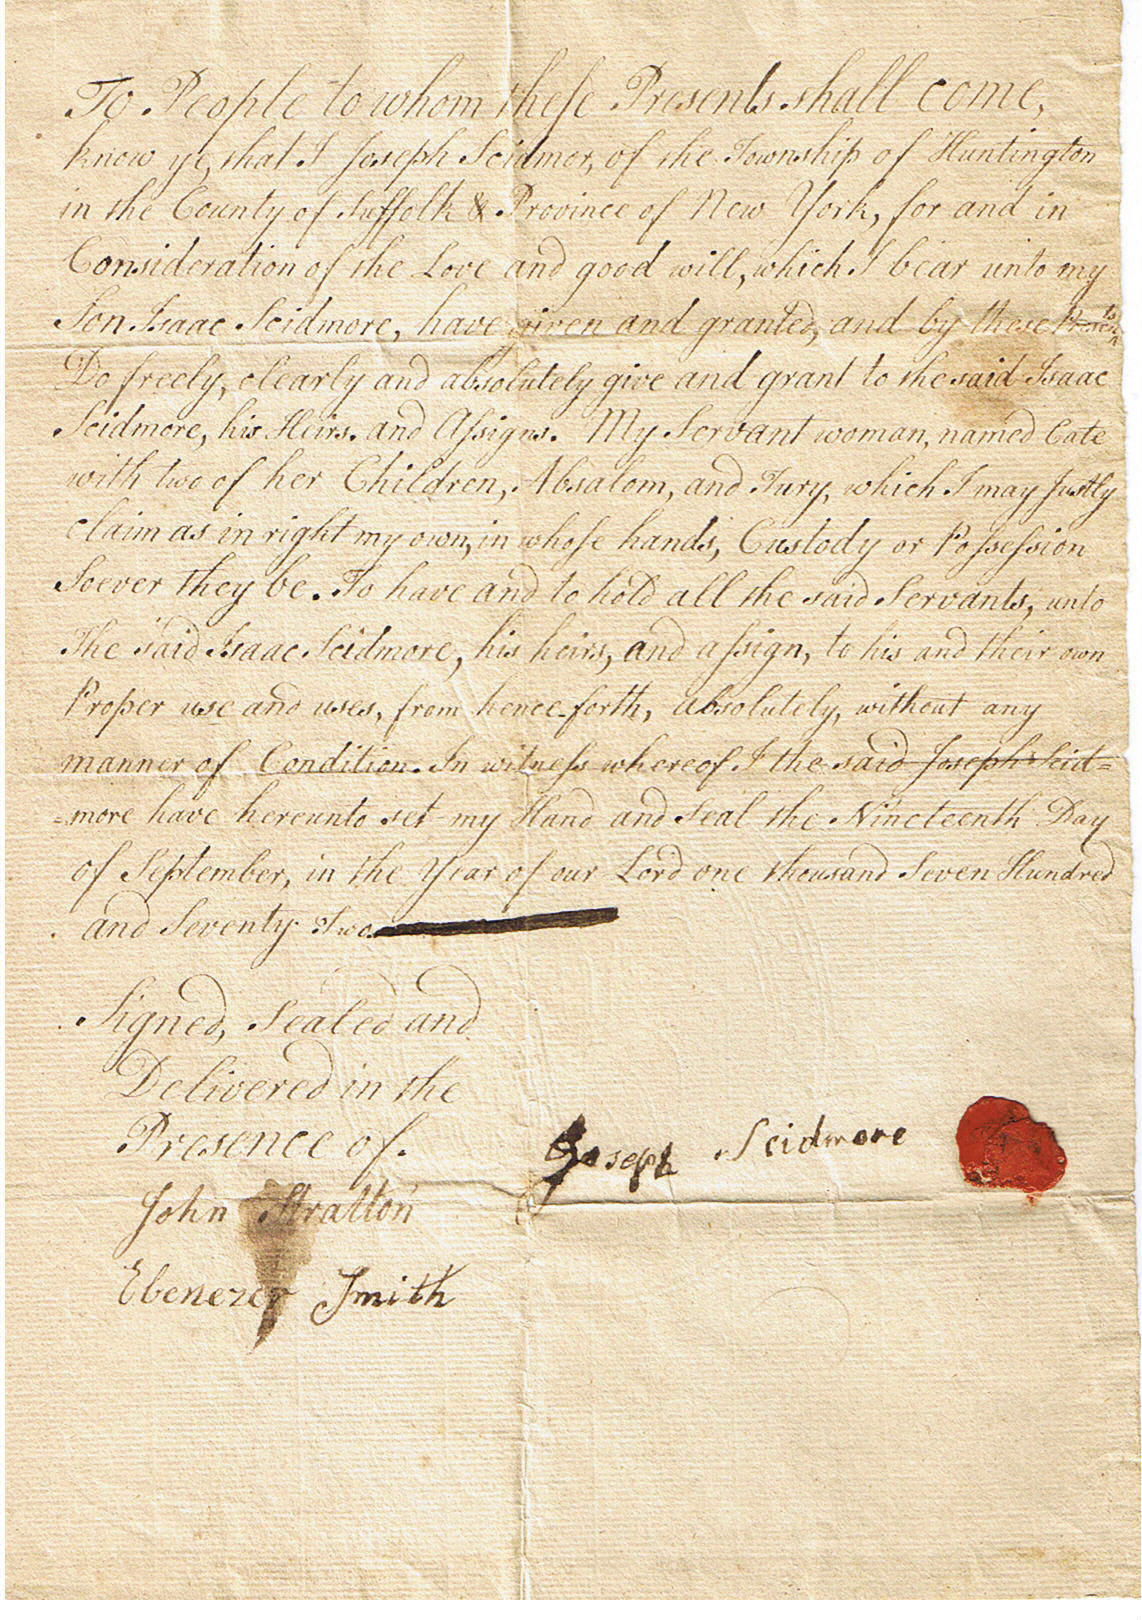 To People to whom these Presents shall come,
know ye, that I Joseph Scidmor, of the Township of Huntington
in the County of Suffolk & Province of New York, for and in
Consideration of the Love and good will, which I bear unto my
Son Isaac Scidmore, have given and granted, and by these Presents
Do freely, clearly and absolutely give and grant to the said Isaac
Scidmore, his Heirs. and Assigns. My Servant woman, named Cate
with two of her Children, Absalom, and Jury, which I may justly
claim as in right my own, in whose hands, Custody or Possession
Soever they be. To have and to hold all the said Servants, unto
The said Isaac Scidmore, his heirs, and assign, to his and their own
Proper use and uses, from hence-forth, absolutely, without any
manner of Condition. In witness whereof I the said Joseph Scid=
=more have hereunto set my Hand and Seal the Nineteenth Day
of September, in the Year of our Lord one thousand Seven Hundred
and Seventy Two
Signed, Sealed and
Delivered in the
Presence of.
Joseph Scidmore
John Stratton
Ebenezer Smith